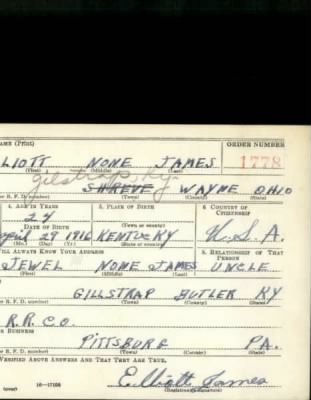 AME (Print) ORDER NUMBER
LIOTT NONE JAMES 1778
(First) (Middle) (Last)
Gilstrap, Ky.
SHREVE WAYNE OHIO
or R. F. D. number) (Town) (County) (State)
4. AGE IN YEARS 5. PLACE OF BIRTH 6. COUNTRY OF CITIZENSHIP
24
DATE OF BIRTH
April 29 1916 KENTUCKY U.S.A.
(Mo.) (Day) (Yr.) (State or country)
ILL ALWAYS KNOW YOUR ADDRESS 8. RELATIONSHIP OF THAT PERSON
JEWEL NONE JAMES UNCLE
(First) (Middle) (Last)
GILLSTRAP BUTLER KY
or R. F. D. number) (Town) (County) (State)
R.R. CO.
R BUSINESS
PITTSBURG PA.
or R. F. D. number) (Town) (County) (State)
VERIFIED ABOVE ANSWERS AND THAT THEY ARE TRUE.
Elliott James
(over) 16—17105 (Registrant's signature)